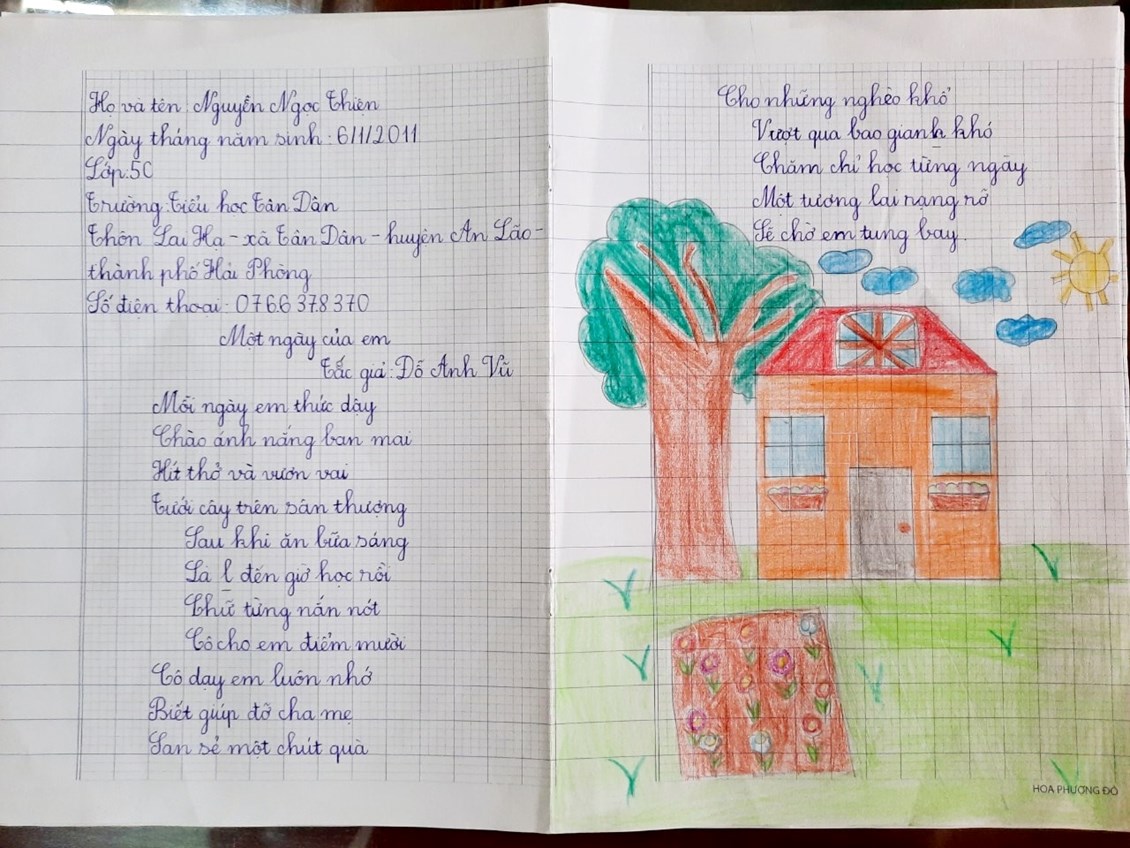 Họ và tên: Nguyễn Ngọc Thiện
Ngày tháng năm sinh: 6/1/2011
Lớp:5C
Trường:Tiểu học Tân Dân
Thôn Lai Hạ - xã Tân Dân - huyện An Lão -
thành phố Hải Phòng
Số điện thoại: 0766 378 370
Một ngày của em
Tắc giả: Đỗ Anh Vũ
Mỗi ngày em thức dậy
Chào ánh nắng ban mai
Hít thở và vươn vai
Tưới cây trên sân thượng
Sau khi ăn bữa sáng
Là l đến giờ học rồi
Chữ từng nắn nót
Cô cho em điểm mười
Cô dạy em luôn nhớ
Biết giúp đỡ cha mẹ
San sẻ một chút quà
Cho những nghèo khổ
Vượt qua bao gianh khó
Chăm chỉ học từng ngày
Một tương lai rạng rỡ
Sẽ chờ em tung bay.
HOA PHƯỢNG ĐỎ